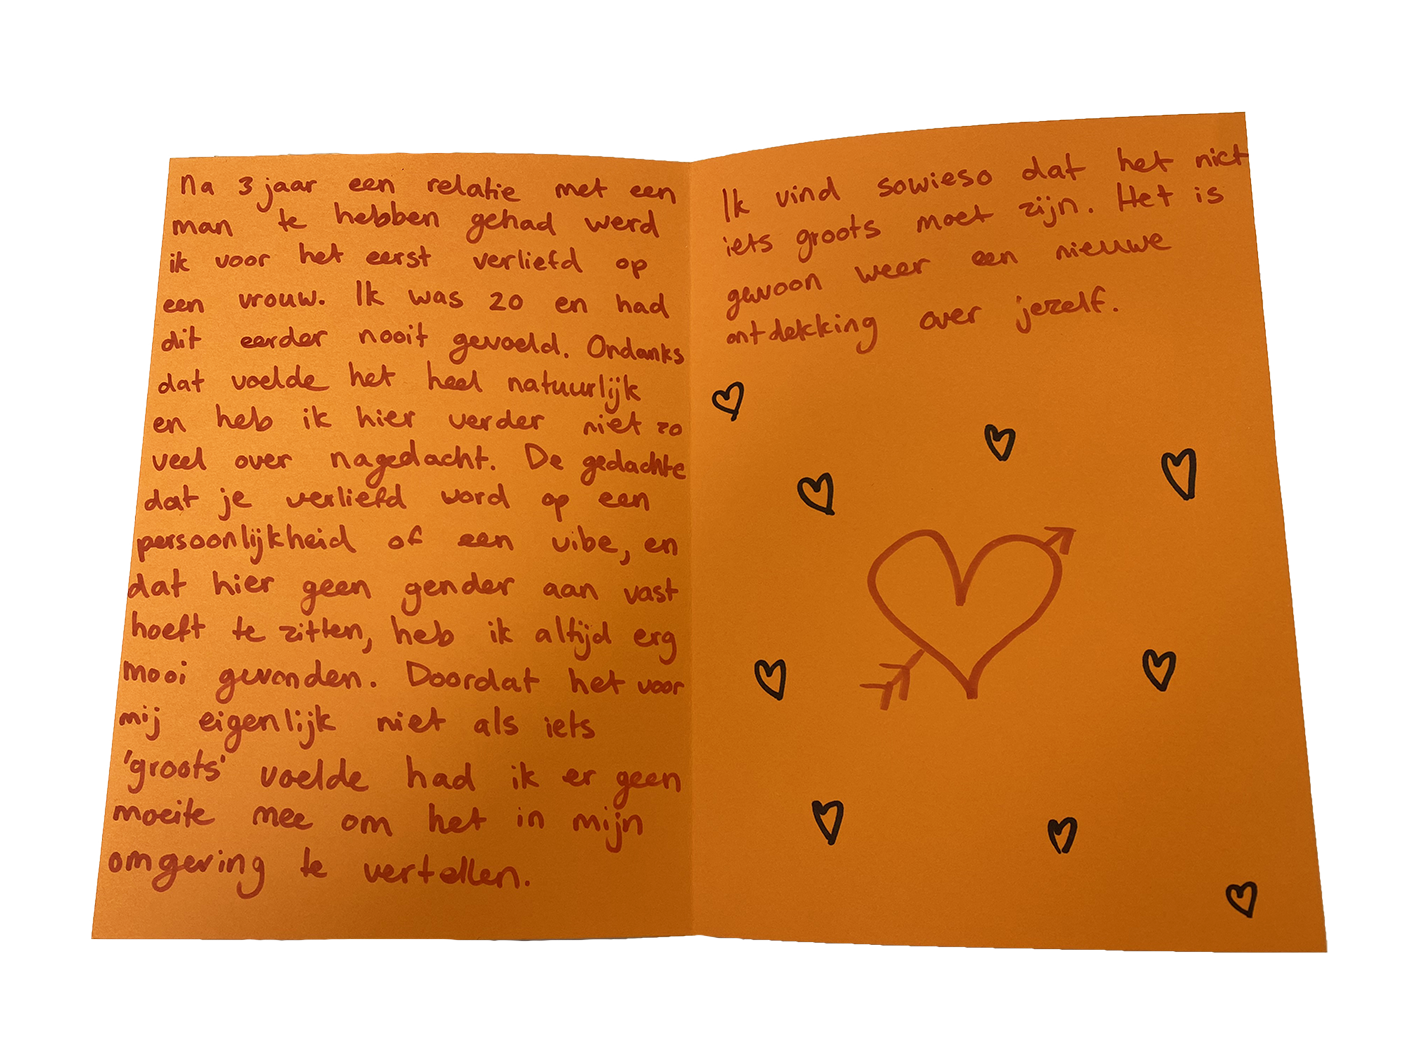 Na 3 jaar een relatie met een
man te hebben gehad werd
ik voor het eerst verliefd op
een vrouw. Ik was 20 en had
dit eerder nooit gevoeld. Ondanks
dat voelde het heel natuurlijk
en heb ik hier verder niet zo
veel over nagedacht. De gedachte
dat je verliefd word op een
persoonlijkheid of een vibe, en
dat hier geen gender aan vast
hoeft te zitten, heb ik altijd erg
mooi gevonden. Doordat het voor
mij eigenlijk niet als iets
'groots' voelde had ik er geen
moeite mee om het in mijn
omgeving te vertellen.
Ik vind sowieso dat het niet
iets groots moet zijn. Het is
gewoon weer een nieuwe
ontdekking over jezelf.